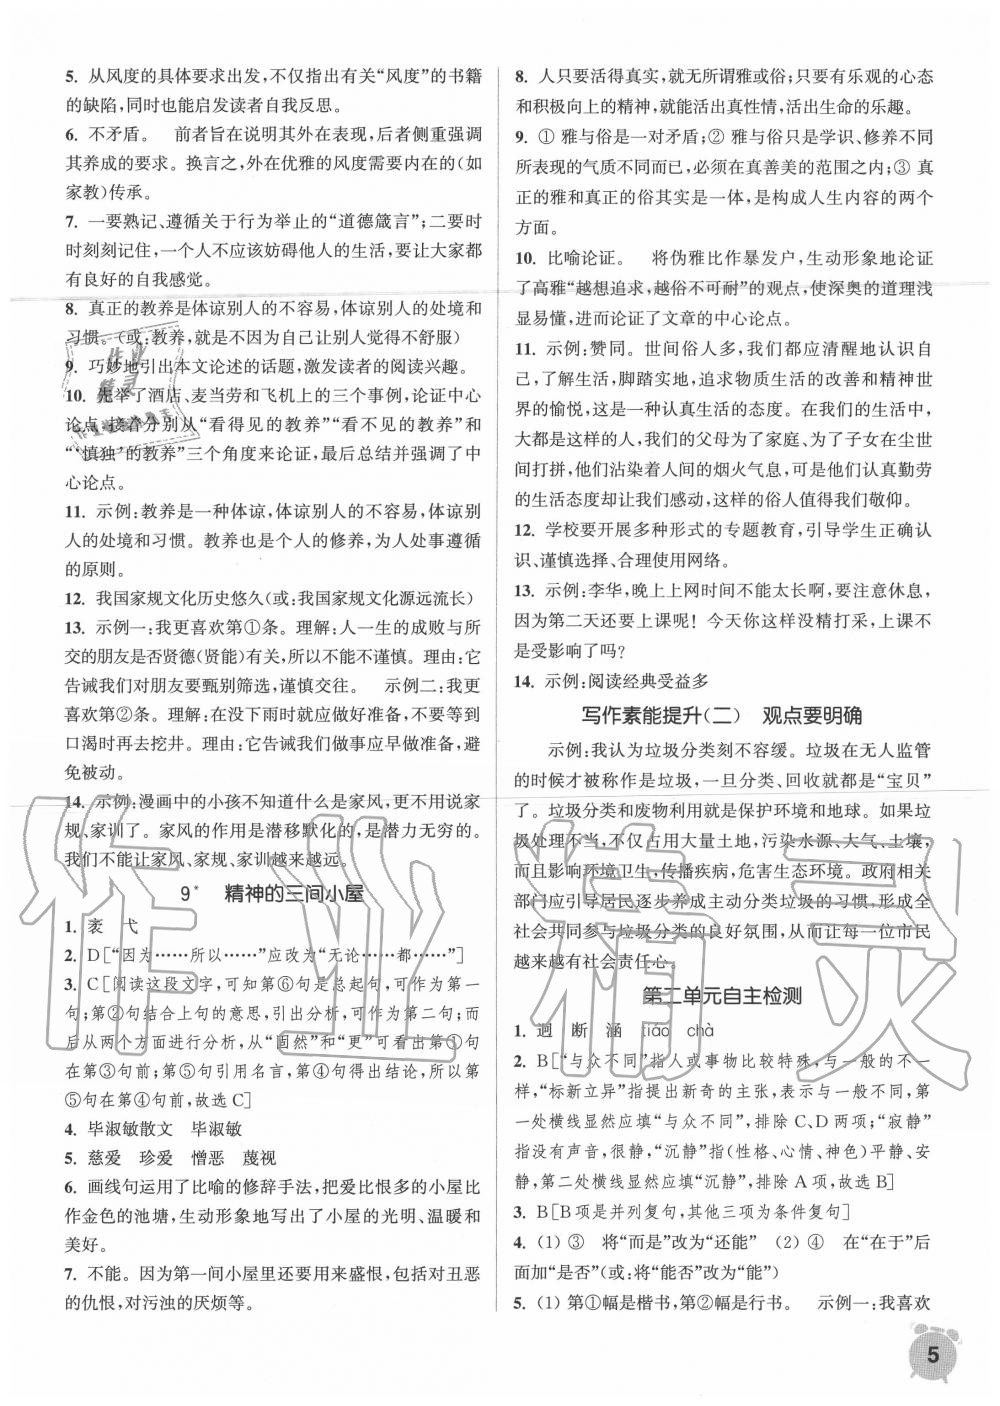 5. 从风度的具体要求出发,不仅指出有关“风度”的书籍
的缺陷,同时也能启发读者自我反思。
6. 不矛盾。 前者旨在说明其外在表现,后者侧重强调
其养成的要求。换言之,外在优雅的风度需要内在的(如
家教)传承。
7. 一要熟记、遵循关于行为举止的“道德箴言”;二要时
时刻刻记住,一个人不应该妨碍他人的生活,要让大家都
有良好的自我感觉。
8. 真正的教养是体谅别人的不容易,体谅别人的处境和
习惯。(或:教养,就是不因为自己让别人觉得不舒服)
9. 巧妙地引出本文论述的话题,激发读者的阅读兴趣。
10. 先举了酒店、麦当劳和飞机上的三个事例,论证中心
论点,接着分别从“看得见的教养”“看不见的教养”
“‘慎独’的教养”三个角度来论证,最后总结并强调了中
心论点。
11. 示例:教养是一种体谅,体谅别人的不容易,体谅别
人的处境和习惯。教养也是个人的修养,为人处事遵循
的原则。
12. 我国家规文化历史悠久(或:我国家规文化源远流长)
13. 示例一:我更喜欢第①条。理解:人一生的成败与所
交的朋友是否贤德(贤能)有关,所以不能不谨慎。理由:它
告诫我们对朋友要甄别筛选,谨慎交往。 示例二:我更
喜欢第②条。理解:在没下雨时就应做好准备,不要等到
口渴时再去挖井。理由:它告诫我们做事应早做准备,避
免被动。
14. 示例:漫画中的小孩不知道什么是家风,更不用说家
规、家训了。家风的作用是潜移默化的,是潜力无穷的。
我们不能让家风、家规、家训越来越远。
9* 精神的三间小屋
1. 袤 弋
2. D[“因为……所以……”应改为“无论……都……”]
3. C[阅读这段文字,可知第⑥句是总起句,可作为第一
句;第②句结合上句的意思,引出分析,可作为第二句;而
后从两个方面进行分析,从“固然”和“更”可看出第①句
在第③句前;第⑤句引用名言,第④句得出结论,所以第
⑤句在第④句前,故选C]
4. 毕淑敏散文 毕淑敏
5. 慈爱 珍爱 憎恶 蔑视
6. 画线句运用了比喻的修辞手法,把爱比恨多的小屋比
作金色的池塘,生动形象地写出了小屋的光明、温暖和
美好。
7. 不能。因为第一间小屋里还要用来盛恨,包括对丑恶
的仇恨,对污浊的厌烦等。
8. 人只要活得真实,就无所谓雅或俗;只要有乐观的心态
和积极向上的精神,就能活出真性情,活出生命的乐趣。
9. ① 雅与俗是一对矛盾;② 雅与俗只是学识、修养不同
所表现的气质不同而已,必须在真善美的范围之内;③ 真
正的雅和真正的俗其实是一体,是构成人生内容的两个
方面。
10. 比喻论证。 将伪雅比作暴发户,生动形象地论证
了高雅“越想追求,越俗不可耐”的观点,使深奥的道理浅
显易懂,进而论证了文章的中心论点。
11. 示例:赞同。世间俗人多,我们都应清醒地认识自
己,了解生活,脚踏实地,追求物质生活的改善和精神世
界的愉悦,这是一种认真生活的态度。在我们的生活中,
大都是这样的人,我们的父母为了家庭、为了子女在尘世
间打拼,他们沾染着人间的烟火气息,可是他们认真勤劳
的生活态度却让我们感动,这样的俗人值得我们敬仰。
12. 学校要开展多种形式的专题教育,引导学生正确认
识、谨慎选择、合理使用网络。
13. 示例:李华,晚上上网时间不能太长啊,要注意休息,
因为第二天还要上课呢!今天你这样没精打采,上课不
是受影响了吗?
14. 示例:阅读经典受益多
写作素能提升(二) 观点要明确
示例:我认为垃圾分类刻不容缓。垃圾在无人监管
的时候才被称作是垃圾,一旦分类、回收就都是“宝贝”
了。垃圾分类和废物利用就是保护环境和地球。如果垃
圾处理不当,不仅占用大量土地,污染水源、大气、土壤,
而且影响环境卫生,传播疾病,危害生态环境。政府相关
部门应引导居民逐步养成主动分类垃圾的习惯,形成全
社会共同参与垃圾分类的良好氛围,从而让每一位市民
越来越有社会责任心。
第二单元自主检测
1. 迥 断 涵 tiáo chà
2. B[“与众不同”指人或事物比较特殊,与一般的不一
样,“标新立异”指提出新奇的主张,表示与一般不同,第
一处横线显然应填“与众不同”,排除C、D两项;“寂静”
指没有声音,很静,“沉静”指(性格、心情、神色)平静、安
静,第二处横线显然应填“沉静”,排除A项,故选B]
3. B[B项是并列复句,其他三项为条件复句]
4. (1) ③ 将“而是”改为“还能” (2) ④ 在“在于”后
面加“是否”(或:将“能否”改为“能”)
5. (1) 第①幅是楷书,第②幅是行书。 示例一:我喜欢
5
作业精灵
作业精灵